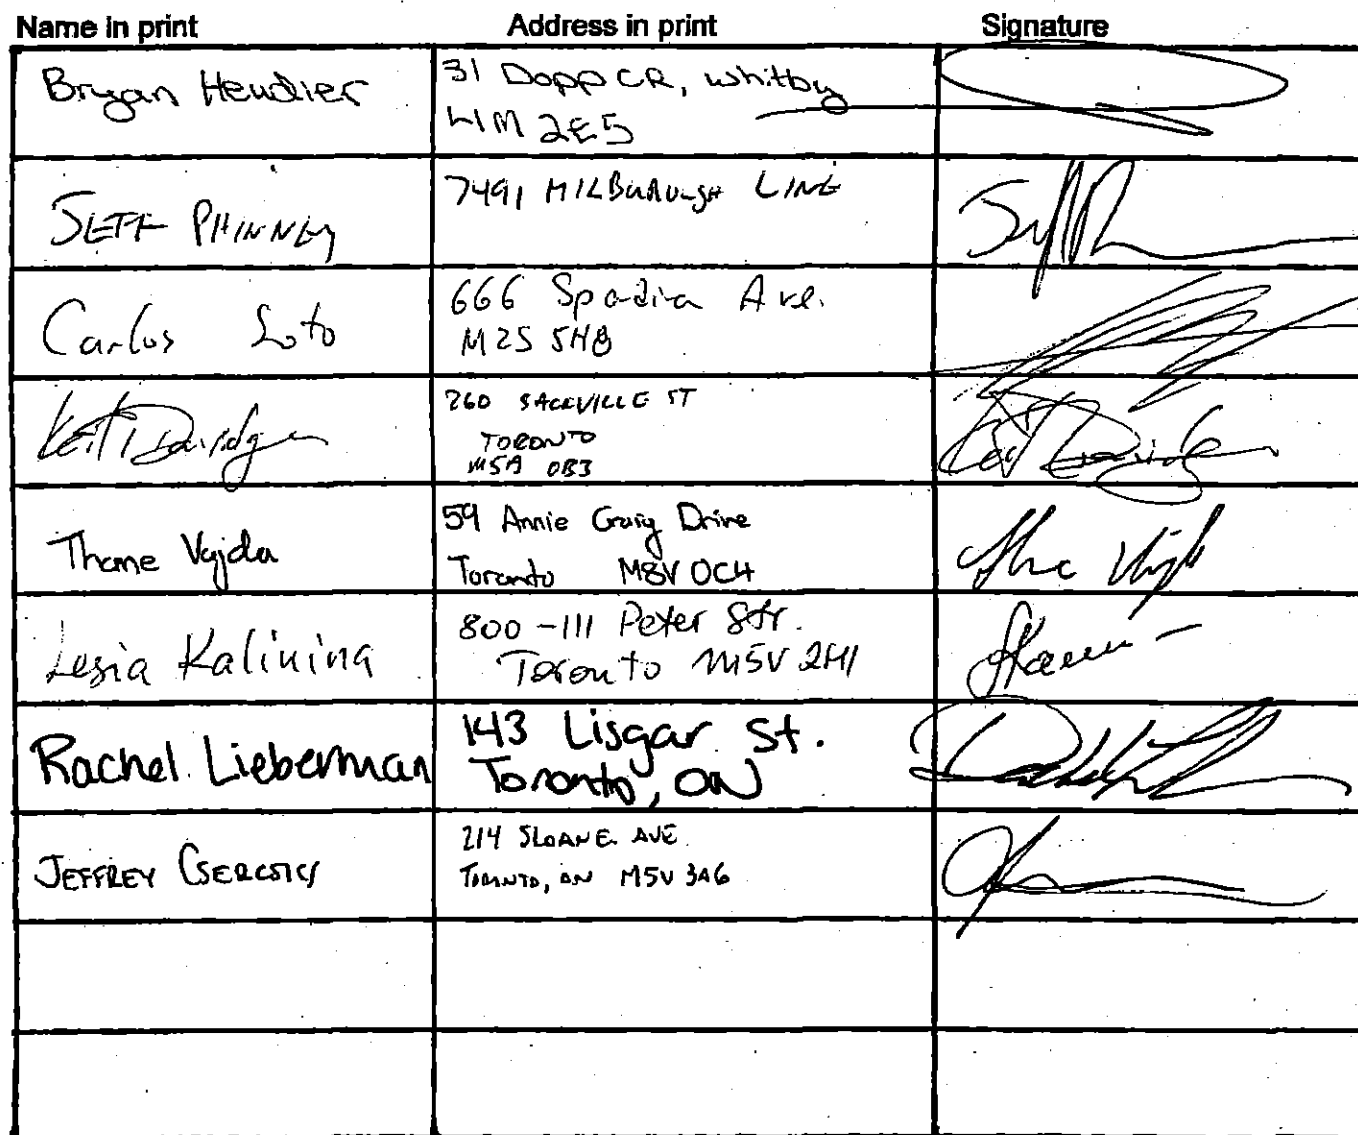 Name in print Address in print Signature
Bryan Heudier 31 Dopp CR, Whitby
L1M 2E5
JEFF PHINNEY 7491 MILBUROUGH LINE
Carlos Soto 666 Spadina Ave.
M2S 5H8
260 SACKVILLE ST
TORONTO
M5A 0B3
Thane Vajda 59 Annie Craig Drive
Toronto M8V 0C4
Lesia Kalinina 800-111 Peter Str.
Toronto M5V 2H1
Rachel Lieberman 143 Lisgar St.
Toronto, ON
JEFFREY 214 SLOANE AVE
TORONTO, ON M5V 3A6